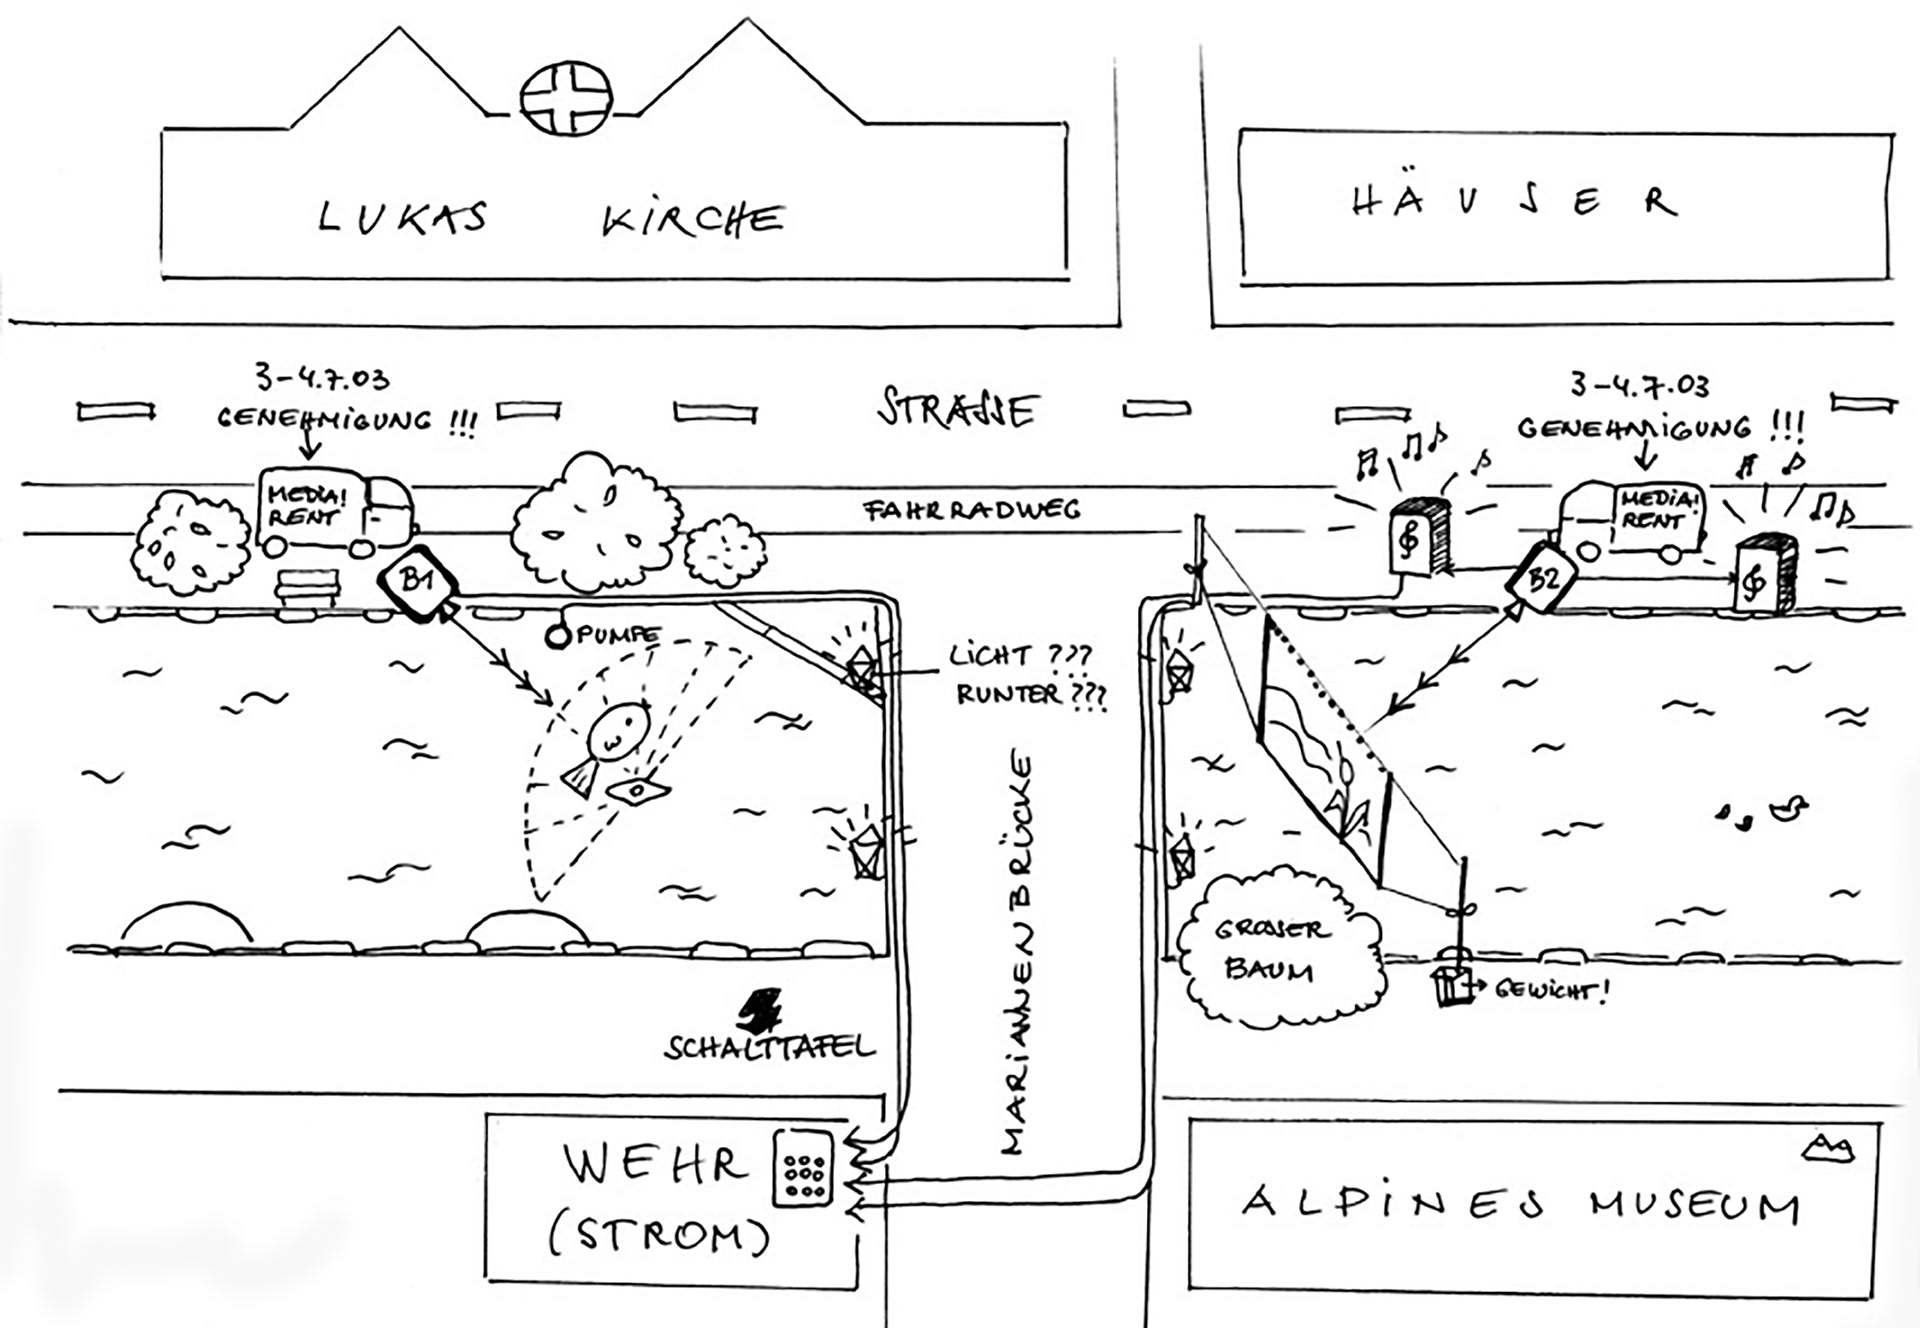 LUKAS KIRCHE
HÄUSER
3-4.7.03
GENEHMIGUNG !!!
STRASSE
3-4.7.03
GENEHMIGUNG !!!
MEDIA!
RENT
FAHRRADWEG
MEDIA!
RENT
B1
B2
PUMPE
LICHT ???
RUNTER ???
MARIANNENBRÜCKE
GROSSER
BAUM
GEWICHT!
SCHALTTAFEL
WEHR
(STROM)
ALPINES MUSEUM